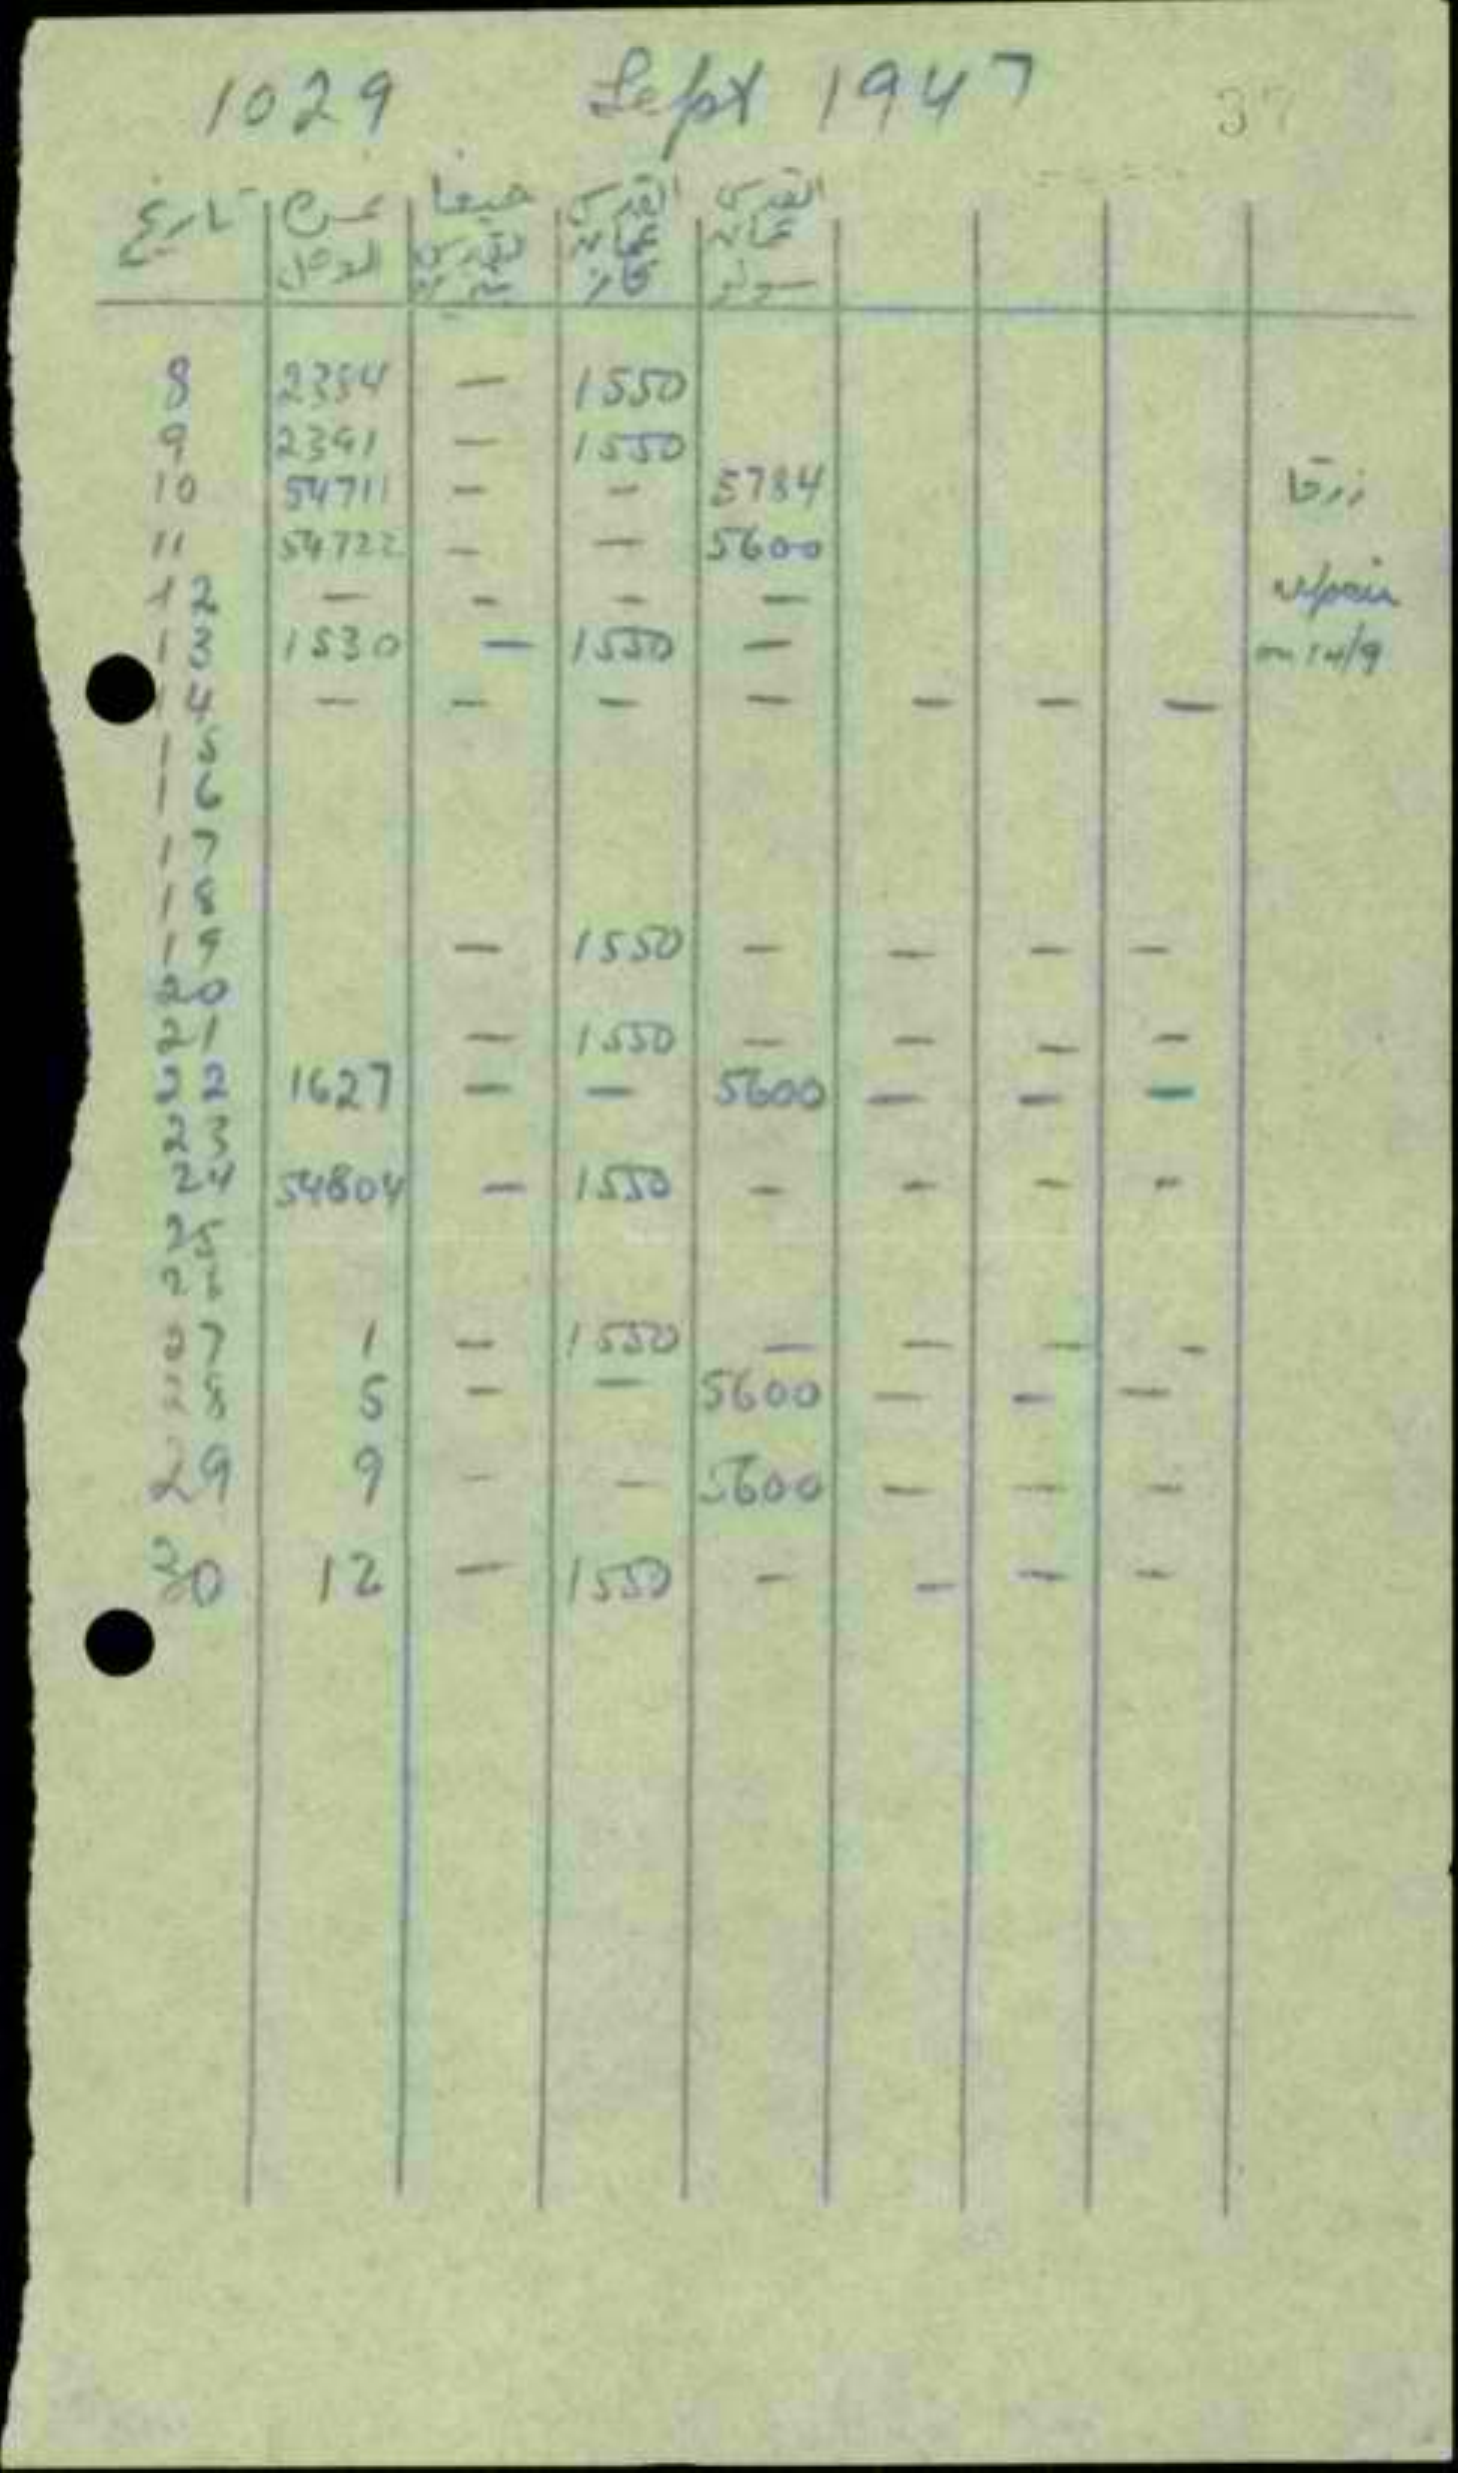 1029 Sept 1947 37
تاريخ حيفا القدس القدس
القدس عمان عمان
كاز سولر
8 2384 — 1550
9 2391 — 1550
10 54711 — — 5784 زرقا
11 54722 — — 5600
12 — — — — repair
13 1530 — 1550 — on 14/9
14 — — — — — — —
15
16
17
18
19 — 1550 — — — —
20
21 — 1550 — — — —
22 1627 — — 5600 — — —
23
24 54804 — 1550 — — — —
25
26
27 1 — 1550 — — — —
28 5 — — 5600 — — —
29 9 — — 5600 — — —
30 12 — 1550 — — — —